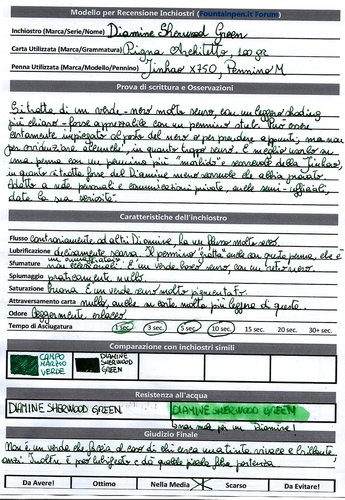 Modello per Recensione Inchiostri (Fountainpen.it Forum)
Inchiostro (Marca/Serie/Nome) Diamine Sherwood Green
Carta Utilizzata (Marca/Grammatura) Pigna Architetto, 100 gr
Penna Utilizzata (Marca/Modello/Pennino) Jinhao X750, Pennino M
Prova di scrittura e Osservazioni
Si tratta di un verde-nero molto scuro, con un leggero shading
più chiaro - forse apprezzabile con un pennino stub. Può essere
certamente impiegato al posto del nero e per prendere appunti, ma non
per evidenziare elementi, in quanto troppo scuro. È meglio usarlo su
una penna con un pennino più "morbido" e scorrevole della Jinhao,
in quanto si tratta forse del Diamine meno scorrevole che abbia provato.
Adatto a note personali e comunicazioni private, anche semi-ufficiali,
data la sua seriosità.
Caratteristiche dell'inchiostro
Flusso contrariamente ad altri Diamine, ha un flusso molto secco.
Lubrificazione decisamente scarsa. Il pennino "gratta" anche con questa penna, che è
Sfumature non eccezionali. È un verde bosco scuro con un retro nero.
Spiumaggio praticamente nullo
Saturazione buona. È un verde scuro molto pigmentato.
Attraversamento carta nullo, anche su carte molto più leggere di questa.
Odore leggermente oleoso
Tempo di Asciugatura 1 sec. 3 sec. 5 sec. 10 sec. 15 sec. 20 sec. 30+ sec.
Comparazione con inchiostri simili
CAMPO MARZIO VERDE
DIAMINE SHERWOOD GREEN
Resistenza all'acqua
DIAMINE SHERWOOD GREEN DIAMINE SHERWOOD GREEN
(non male per un Diamine!)
Giudizio Finale
Non è un verde che faccia al caso di chi cerca una tinta vivace e brillante,
anzi. Inoltre è poco lubrificato e dà quella piccola
Da Avere! Ottimo Nella Media Scarso Da Evitare!